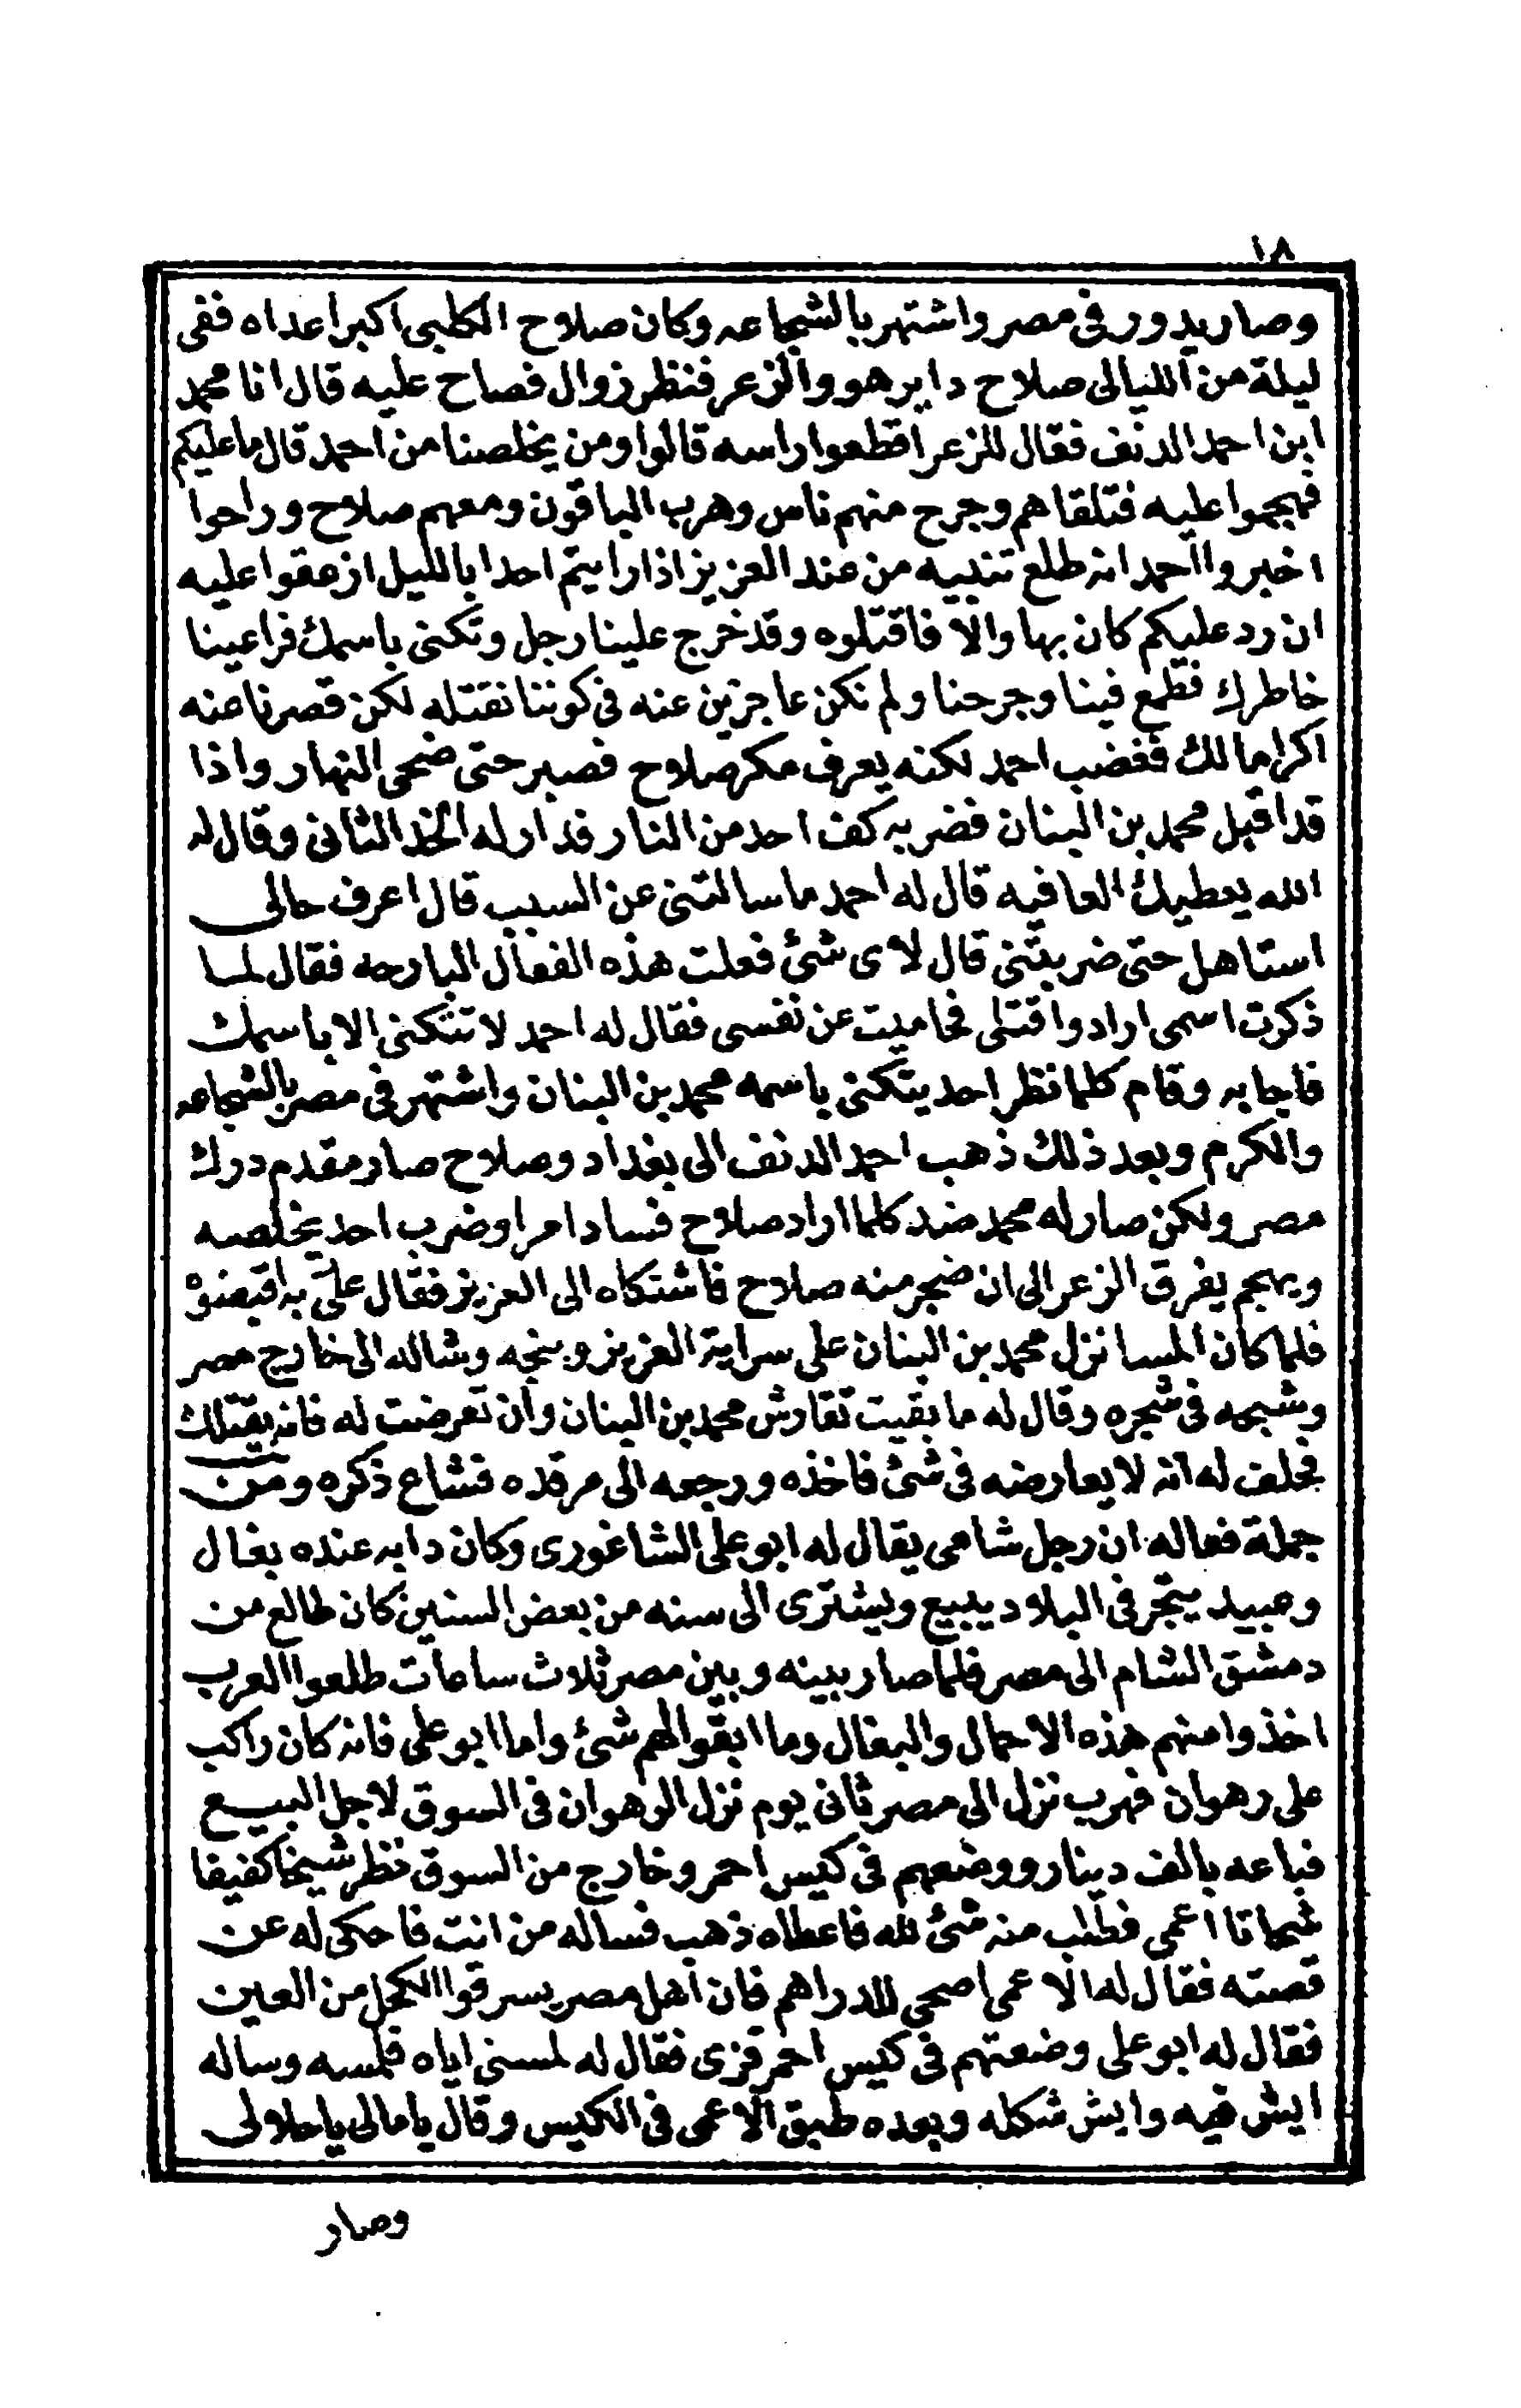 ١٨
وصار يدور فى مصر واشتهر بالشجاعه وكان صلاح الكلبى اكبر اعداه ففى
ليلة من الليالى صلاح داير هو والزعر فنظر زوال فصاح عليه قال انا محمد
ابن احمد الدنف فقال للزعر اقطعوا راسه قالوا ومن يخلصنا من احمد قال ما عليكم
فهجموا عليه فتلقاهم وجرح منهم ناس وهرب الباقون ومعهم صلاح وراحوا
اخبروا احمد انه طلع تنبيه من عند العزيز اذا رايتم احدا بالليل ازعقوا عليه
ان رد عليكم كان بها والا فاقتلوه وقد خرج علينا رجل وتكنى باسمك فراعينا
خاطرك فطمع فينا وجرحنا ولم نكن عاجزين عنه فى كوننا نقتله لكن قصرنا عنه
اكراما لك فغضب احمد لكنه يعرف مكر صلاح فصبر حتى ضحى النهار واذا
قد اقبل محمد بن البنان فضربه كف احد من النار فدار له الخد الثانى وقال له
الله يعطيك العافيه قال له احمد ما سالتنى عن السبب قال اعرف حالى
استاهل حتى ضربتنى قال لاى شئ فعلت هذه الفعال البارحه فقال لما
ذكرت اسمى ارادوا قتلى فحاميت عن نفسى فقال له احمد لا تتكنى الا باسمك
فاجابه وقام كلما نظر احد يتكنى باسمه محمد بن البنان واشتهر فى مصر بالشجاعه
والكرم وبعد ذلك ذهب احمد الدنف الى بغداد وصلاح صار مقدم درك
مصر ولكن صار له محمد ضد كلما اراد صلاح فساد امرا وضرب احد يخلصه
ويهجم يفرق الزعر الى ان ضجر منه صلاح فاشتكاه الى العزيز فقال على به اقبضوه
فلما كان المسا نزل محمد بن البنان على سراية العزيز وبنجه وشاله الى خارج مصر
وشبحه فى شجره وقال له ما بقيت تقارش محمد بن البنان وان تعرضت له فانه يقتلك
فحلف له انه لا يعارضه فى شئ فاخذه ورجعه الى مرقده فشاع ذكره ومن
جملة فعاله ان رجل شامى يقال له ابو على الشاغورى وكان دابه عنده بغال
وعبيد يتجر فى البلاد يبيع ويشترى الى سنه من بعض السنين كان طالع من
دمشق الشام الى مصر فلما صار بينه وبين مصر ثلاث ساعات طلعوا العرب
اخذوا منهم هذه الاحمال والبغال وما ابقوا لهم شئ واما ابو على فانه كان راكب
على رهوان فهرب نزل الى مصر ثانى يوم نزل الرهوان فى السوق لاجل البيع
فباعه بالف دينار ووضعهم فى كيس احمر وخارج من السوق نظر شيخا كفيفا
شحاتا اعمى فطلب منه شئ لله فاعطاه ذهب فساله من انت فاحكى له عن
قصته فقال له الاعمى اصحى للدراهم فان اهل مصر يسرقوا الكحل من العين
فقال له ابو على وضعتهم فى كيس احمر قزى فقال له لمسنى اياه فلمسه وساله
ايش فيه وايش شكله وبعده طبق الاعمى فى الكيس وقال يا مالى يا حلالى
وصار